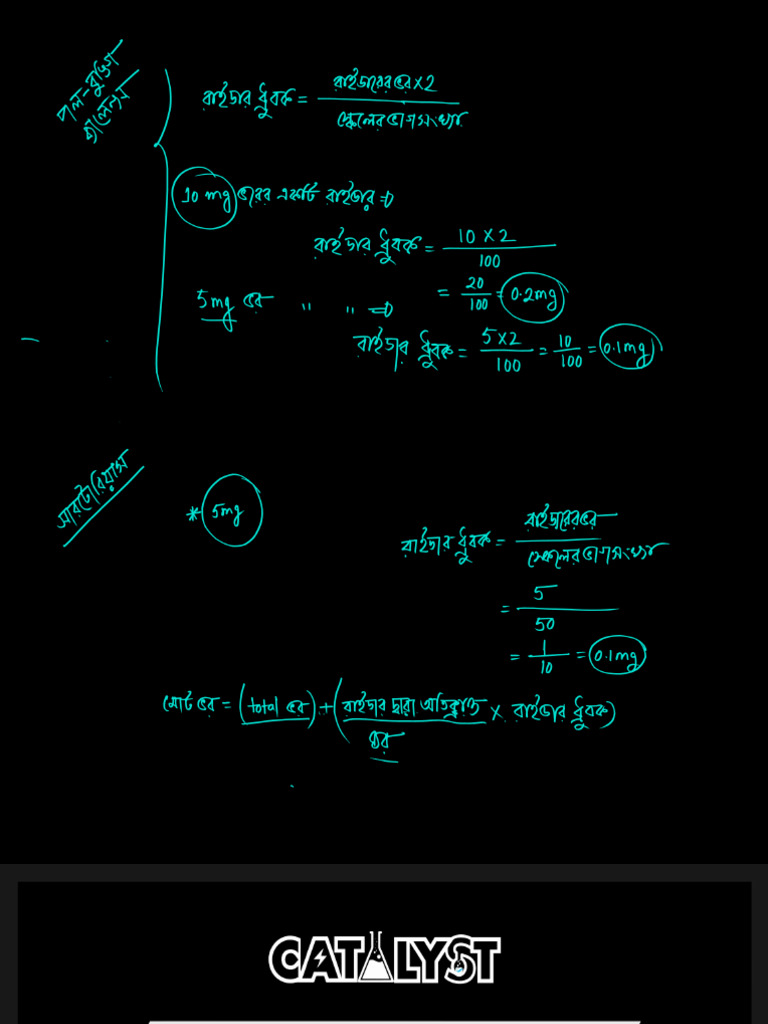 পল-বুঙ্গি
ব্যালেন্স
রাইডার ধ্রুবক = রাইডারের ভর × 2 / স্কেলের ভাগ সংখ্যা
10 mg ভরের একটি রাইডার ⇒
রাইডার ধ্রুবক = 10 × 2 / 100
= 20 / 100 = 0.2mg
5mg ভর " " ⇒
রাইডার ধ্রুবক = 5 × 2 / 100 = 10 / 100 = 0.1mg
সারটোরিয়াস
* 5mg
রাইডার ধ্রুবক = রাইডারের ভর / স্কেলের ভাগ সংখ্যা
= 5 / 50
= 1 / 10 = 0.1mg
মোট ভর = (total ভর) + (রাইডার দ্বারা অতিক্রান্ত ঘর × রাইডার ধ্রুবক)
CATALYST